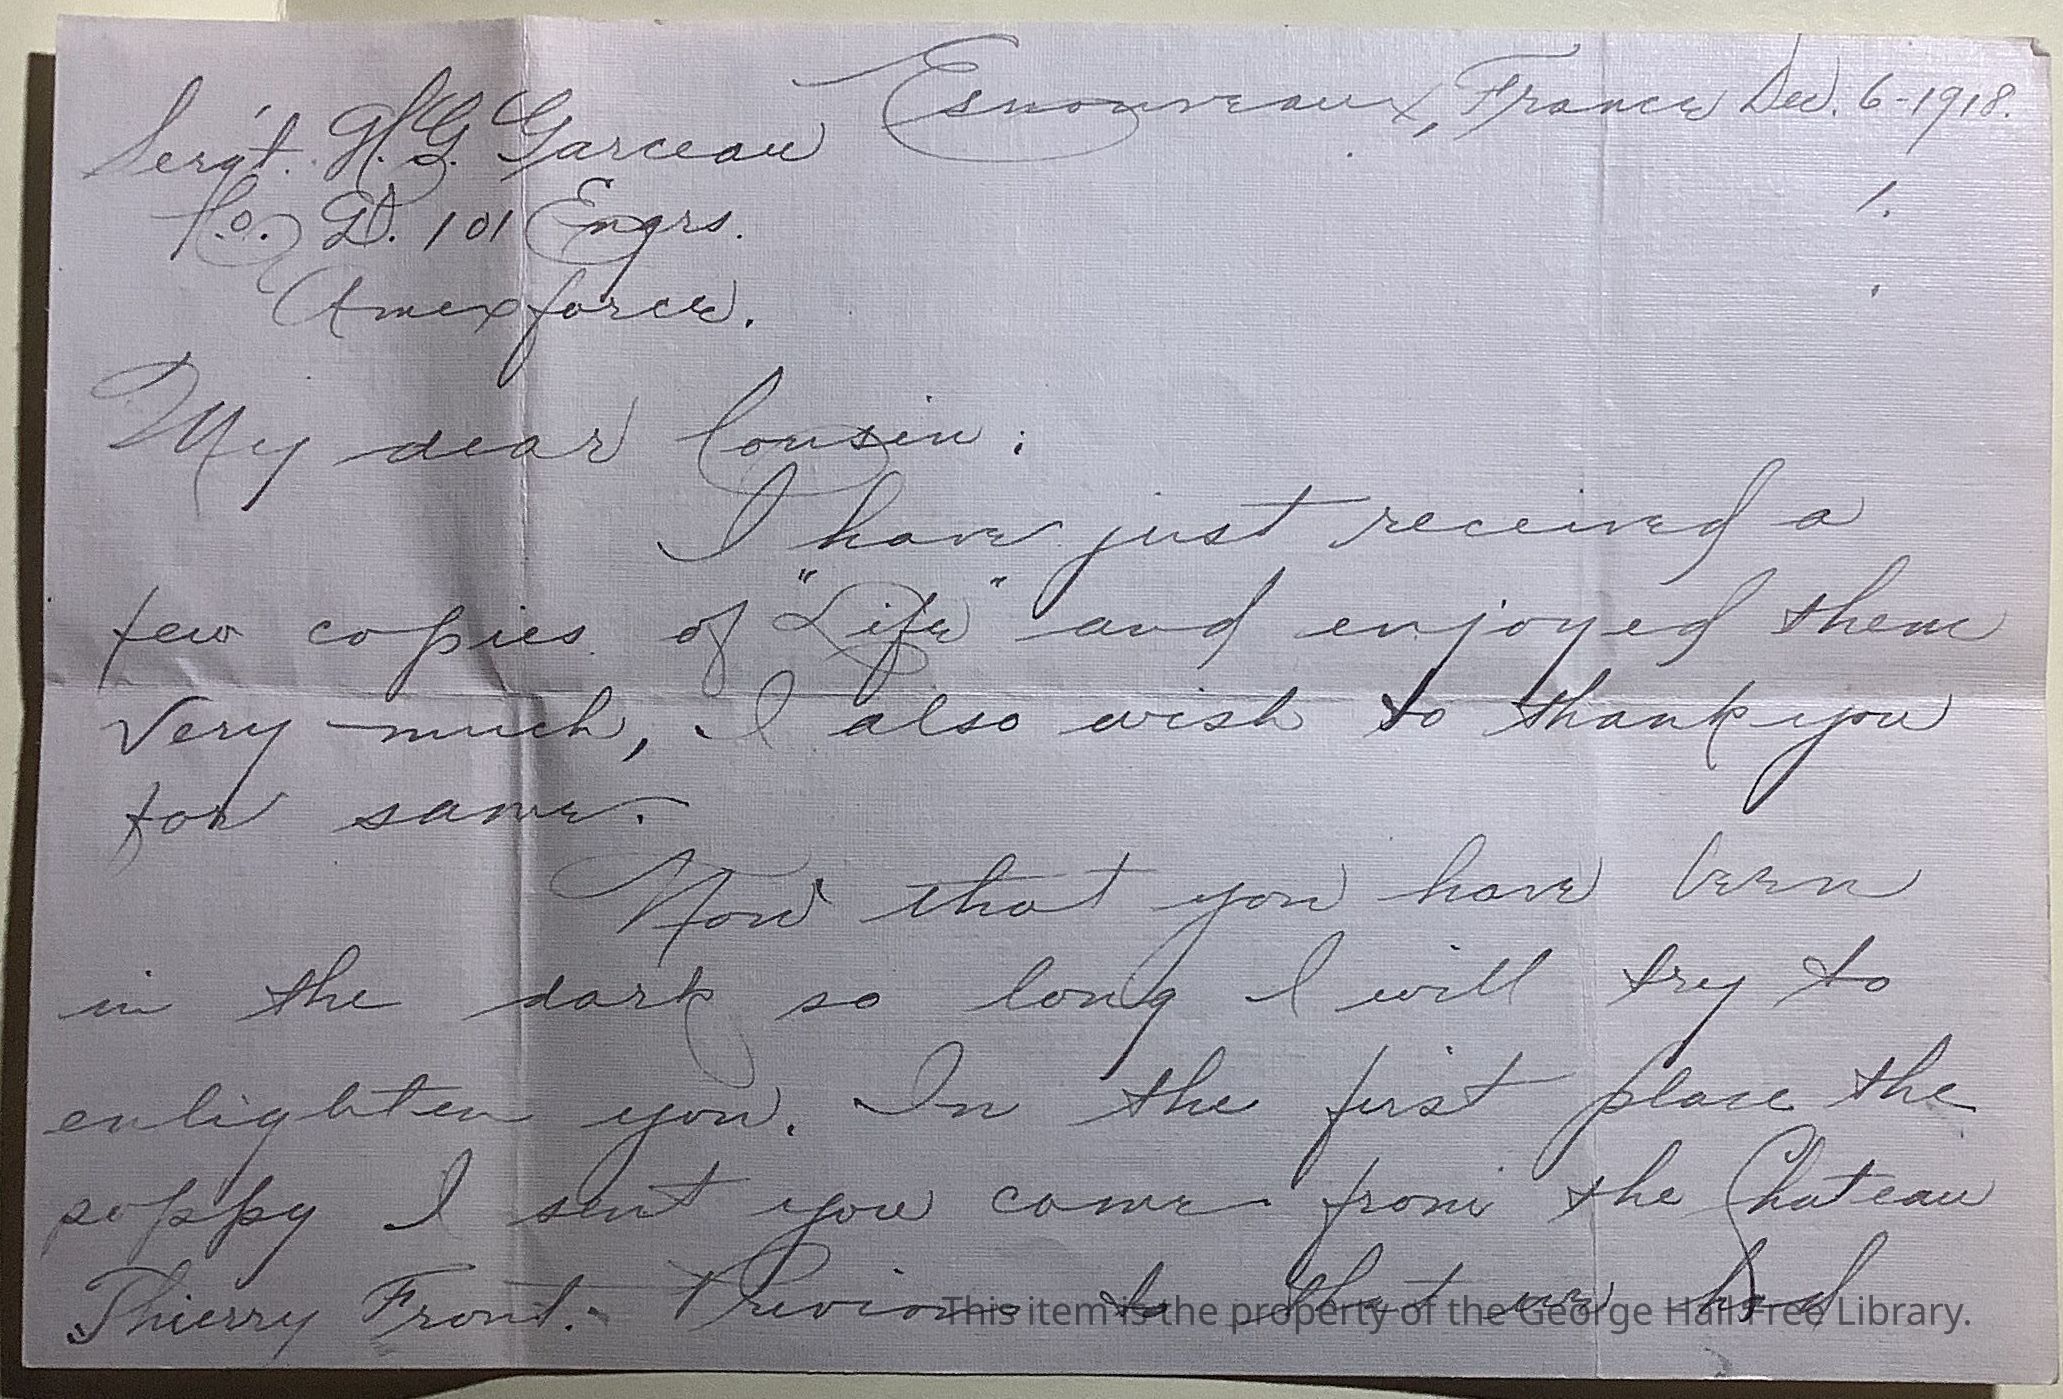 Esnouveaux, France Dec. 6-1918.
Serg't. H. G. Garceau
Co. D. 101 Engrs.
1.
Amexforce.
My dear Cousin:
I have just received a
few copies of "Life" and enjoyed them
very much, I also wish to thank you
for same.
Now that you have been
in the dark so long I will try to
enlighten you. In the first place the
poppy I sent you came from the Chateau
Thierry Front. Previous to that we had
This item is the property of the George Hail Free Library.